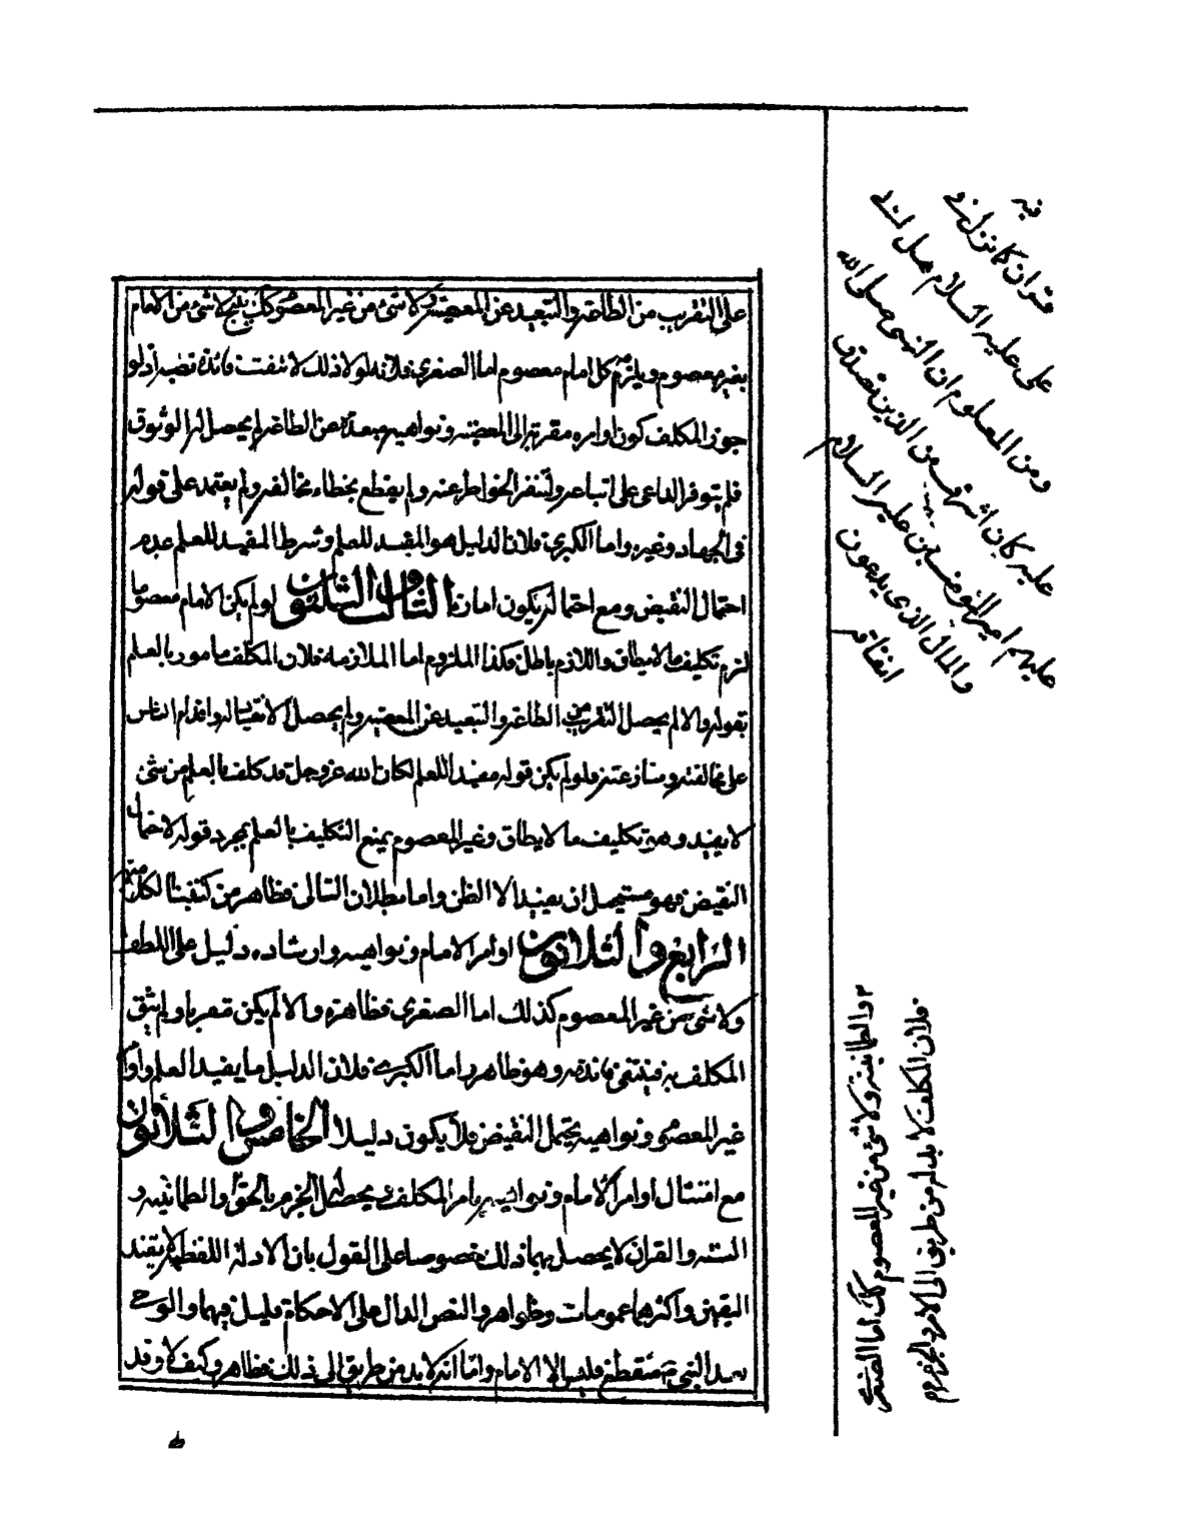 على التقريب من الطاعة والتبعيد عن المعصية ولا شئ من غير المعصوم كك ينتج لا شئ من الامام
بغير معصوم ويلزم كل امام معصوم اما الصغرى فلانه لولا ذلك لانتفت فائدة نصبه اذ لو
جوز المكلف كون اوامره مقربة الى المعصية ونواهيه مبعدة عن الطاعة لم يحصل له الوثوق
فلم يتوفر الداعى على اتباعه ولتنفر الخواطر عنه ولم يقطع بخطاء مخالفه ولم يعتمد على قوله
فى الجهاد وغيره واما الكبرى فلان الدليل هو المفيد للعلم وشرط المفيد للعلم عدم
احتمال النقيض ومع احتماله يكون امارة الثالث والثلثون لو لم يكن الامام معصوما
لزم تكليف ما لا يطاق واللازم باطل فكذا الملزوم اما الملازمة فلان المكلف مامور بالعلم
بقوله والا لم يحصل التقريب من الطاعة والتبعيد عن المعصية ولم يحصل الانقياد له واقدام الناس
على مخالفته ومنازعته فلو لم يكن قوله مفيدا للعلم لكان الله عز وجل قد كلف بالعلم من شئ
لا يفيده وهو تكليف ما لا يطاق وغير المعصوم يمنع التكليف بالعلم بمجرد قوله لاحتمال
النقيض فهو مستحيل ان يفيد الا الظن واما بطلان التالى فظاهر من كتبنا الكلامية
الرابع والثلاثون اوامر الامام ونواهيه وارشاده دليل على اللطف
ولا شئ من غير المعصوم كذلك اما الصغرى فظاهرة والا لم يكن مقربا ولم يثق
المكلف به فينتفى فائدته وهو ظاهر واما الكبرى فلان الدليل ما يفيد العلم واوامر
غير المعصوم ونواهيه يحتمل النقيض فلا يكون دليلا الخامس والثلاثون
مع امتثال اوامر الامام ونواهيه يامن المكلف ويحصل له الجزم بالحق والطمانينة و
السنة والقران لا يحصل بهما ذلك خصوصا على القول بان الادلة اللفظية لا يفيد
اليقين واكثرهما عمومات وظواهر والنص الدال على الاحكام قليل فيهما والوحى
بعد النبى منقطع فليس الا الامام واما انه لا بد من طريق الى ذلك فظاهر وكيف لا وقد
فيه
قران كما نزل فى
على عليه السلام هل اتى
ومن المعلوم ان النبى صلى الله
عليه كان اشرف من الذين تصدق
عليهم امير المؤمنين عليه السلام
والمال الذى يدعون
انفاقه
والطمانينة ولا شئ من غير المعصوم كك اما الصغرى
فلان المكلف لا بد له من طريق الى الامر والجزم